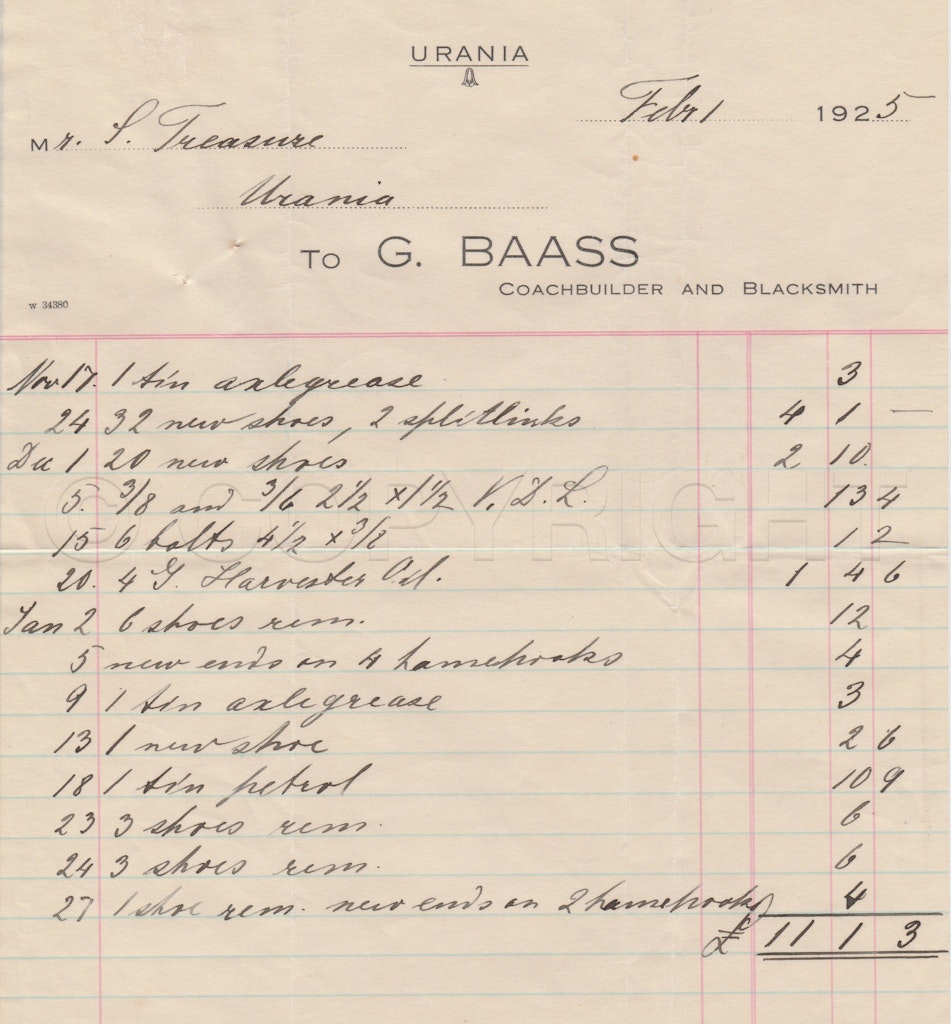 URANIA
Febr 1 1925
Mr. S. Treasure
Urania
To G. BAASS
COACHBUILDER AND BLACKSMITH
W 34380
Nov 17. 1 tin axlegrease 3
24 32 new shoes, 2 splitlinks 4 1 —
Dec 1 20 new shoes 2 10.
5. 3/8 and 3/6 2 1/2 x 1 1/2 V. D. L. 13 4
15 6 bolts 4 1/2 x 3/8 1 2
20. 4 G. Harvester Oil. 1 4 6
Jan 2 6 shoes rem. 12
5 new ends on 4 hamehooks 4
9 1 tin axlegrease 3
13 1 new shoe 2 6
18 1 tin petrol 10 9
23 3 shoes rem. 6
24 3 shoes rem. 6
27 1 shoe rem. new ends on 2 hamehooks 4
£ 11 1 3
© COPYRIGHT